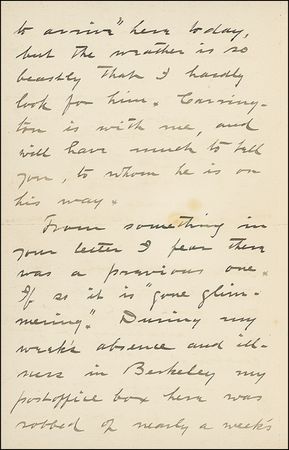 to arrive" here today,
but the weather is so
beastly that I hardly
look for him. Carring-
ton is with me, and
will have much to tell
you, to whom he is on
his way.
From something in
your letter I fear there
was a previous one.
If so it is "gone glim-
mering." During my
week's absence and ill-
ness in Berkeley my
postoffice box here was
robbed of nearly a week's